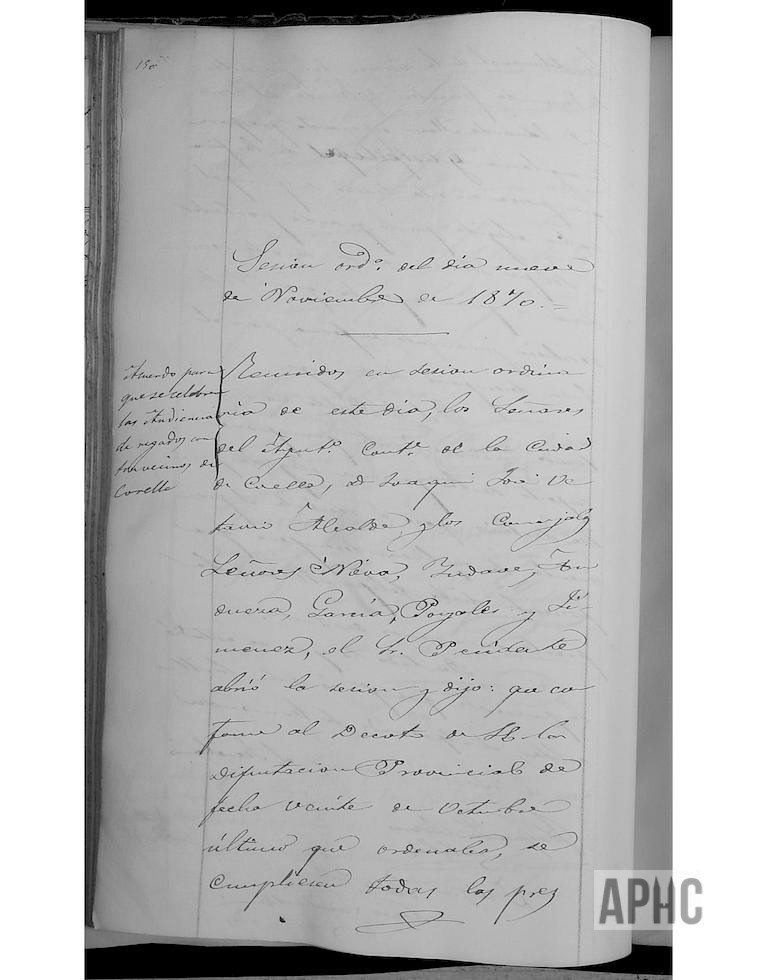 150
Sesion ordª. del dia nueve
de Noviembre de 1870.=
Acuerdo para
que se celebren
las Audiencias
de regados con
tra vecinos de
Corella
Reunidos en sesion ordina
ria de este dia, los Señores
del Ayuntº. Contˡ. de la Ciudad
de Corella, D. Joaquin José Oc
tavio Alcalde, y los Concejales
Señores
duera, Garcia, Poyales y Ji-
menez, el Sr. Presidente
abrió la sesion y dijo: que con
forme al Decreto de
Diputacion Provincial de
fecha veinte de Octubre
último que ordenaba, se
cumpliesen todas las pres
APHC